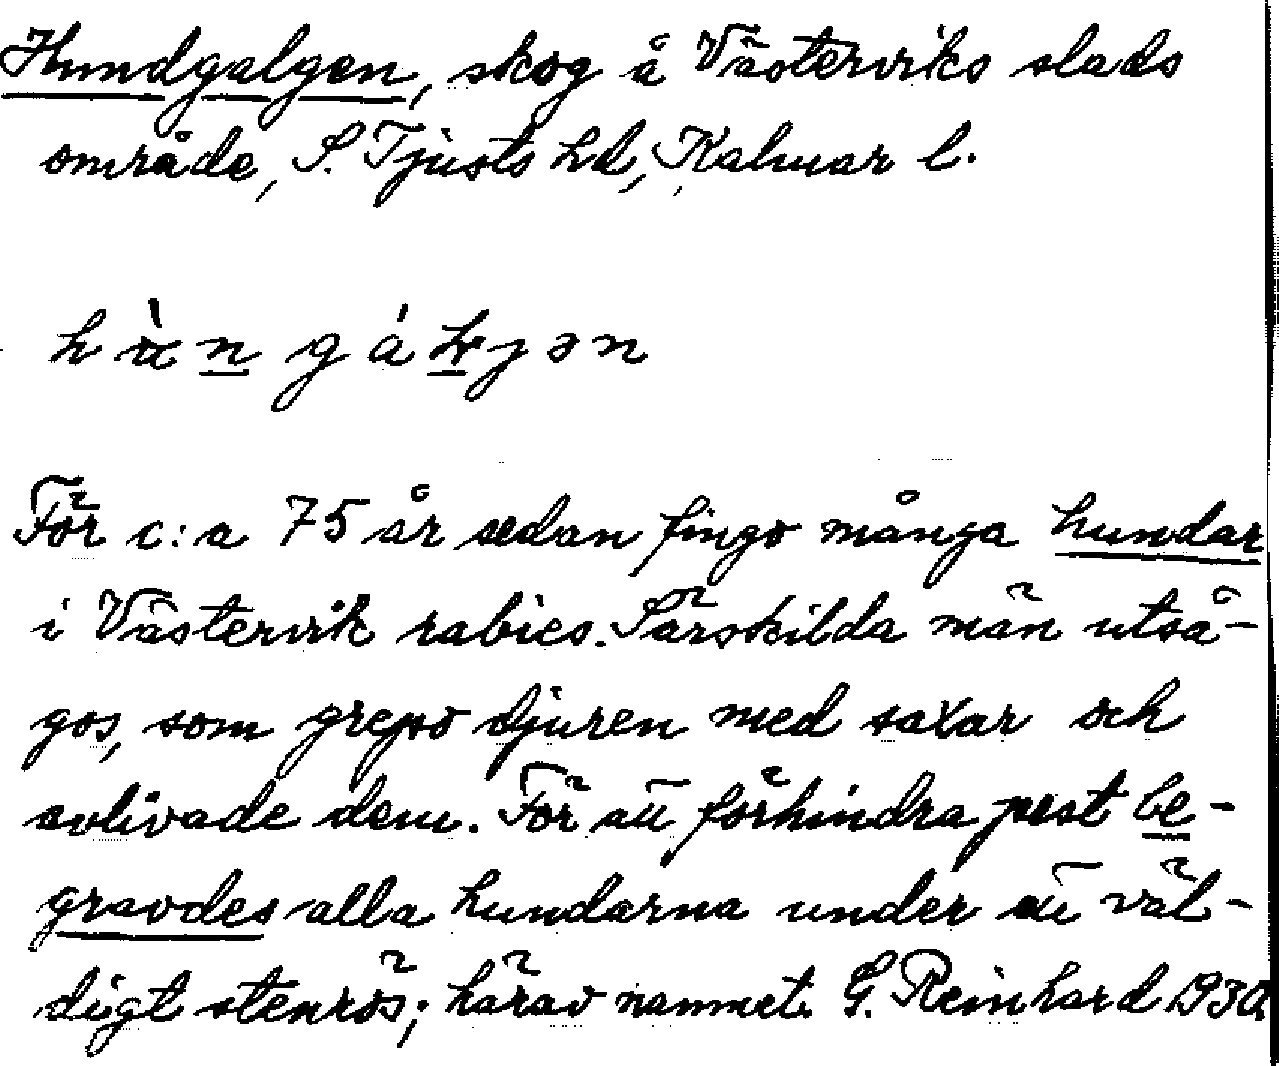 Hundgalgen, skog å Västerviks stads
område, S. Tjusts hd, Kalmar l.
För c:a 75 år sedan fingo många hundar
i Västervik rabies. Särskilda män utså-
gos, som grepo djuren med saxar och
avlivade dem. För att förhindra pest be-
gravdes alla hundarna under ett väl-
digt stenrös; härav namnet. G. Reinhard 1930